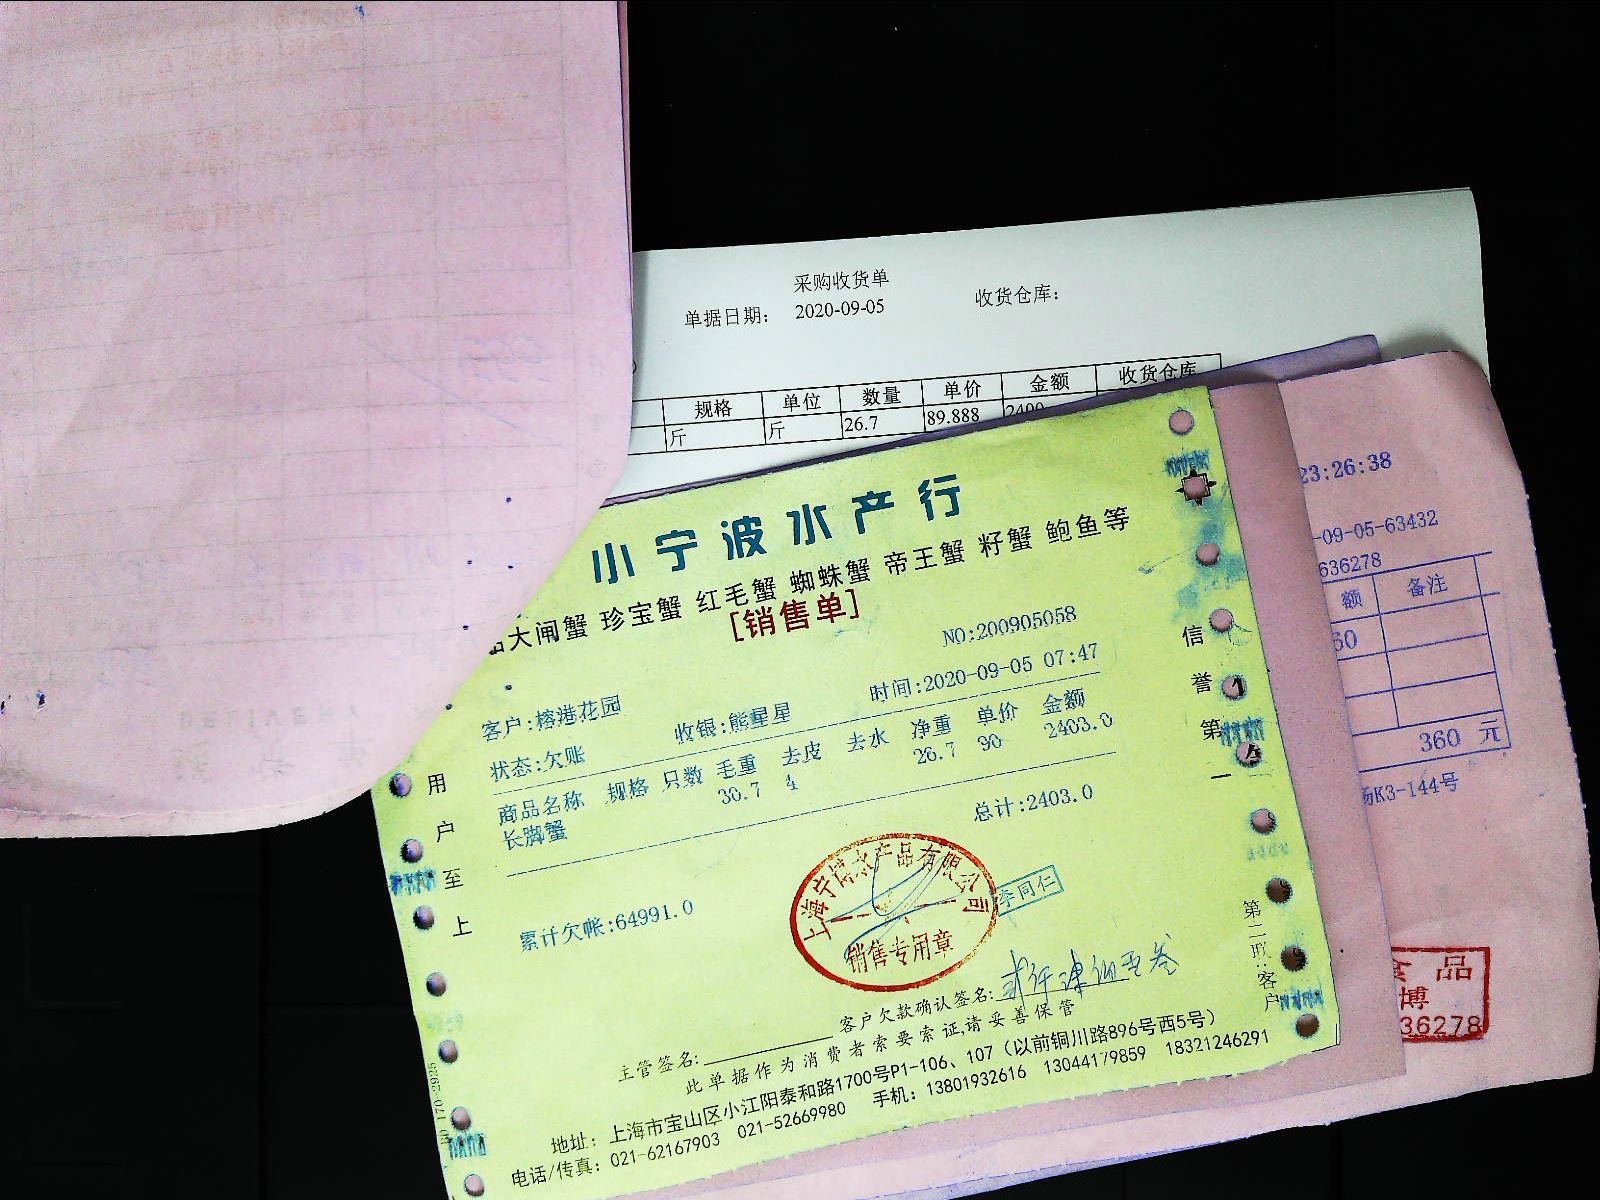 采购收货单
单据日期： 2020-09-05 收货仓库：
规格 单位 数量 单价 金额 收货仓库
斤 斤 26.7 89.888 2400
23:26:38
-09-05-63432
636278
额 备注
60
360 元
场K3-144号
食品
博
36278
小宁波水产行
大闸蟹 珍宝蟹 红毛蟹 蜘蛛蟹 帝王蟹 籽蟹 鲍鱼等
[销售单]
NO:200905058
客户:榕港花园 收银:熊星星 时间:2020-09-05 07:47
状态:欠账
商品名称 规格 只数 毛重 去皮 去水 净重 单价 金额
长脚蟹 30.7 4 26.7 90 2403.0
总计:2403.0
累计欠帐:64991.0
上海宁波水产品有限公司
销售专用章
李同仁
主管签名: 客户欠款确认签名:
此单据作为消费者索要索证,请妥善保管
地址：上海市宝山区小江阳泰和路1700号P1-106、107（以前铜川路896号西5号）
电话/传真：021-62167903 021-52669980 手机：13801932616 13044179859 18321246291
用户至上
信誉第一
第二联:客户